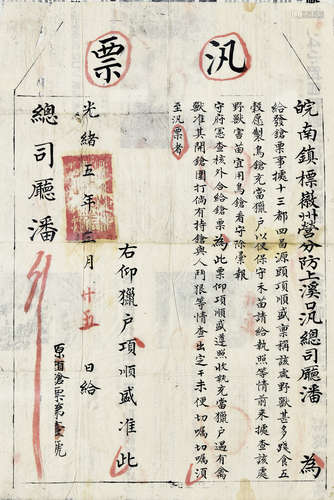 汛票
皖南鎮標徽州營分防上溪口汛總司廳潘 為
給發鎗票事據十三都四畐源頭項順盛稟稱該處野獸甚多踐食五
穀愿製鳥鎗充當獵户以便保守禾苗請給執照等情前来據查該處
野獸害苗宜用鳥鎗看守除彙報
守府憲查核外合給鎗票為此票仰項順盛遵照收執充當獵户遇有禽
獸准其開鎗圍打倘有持鎗與人鬥狠等情查出定干未便切嘱切嘱須
至汛票者
右仰獵户項順盛准此
光緒五年三月廿五日給
總司廳潘
原百鎗票第壹號